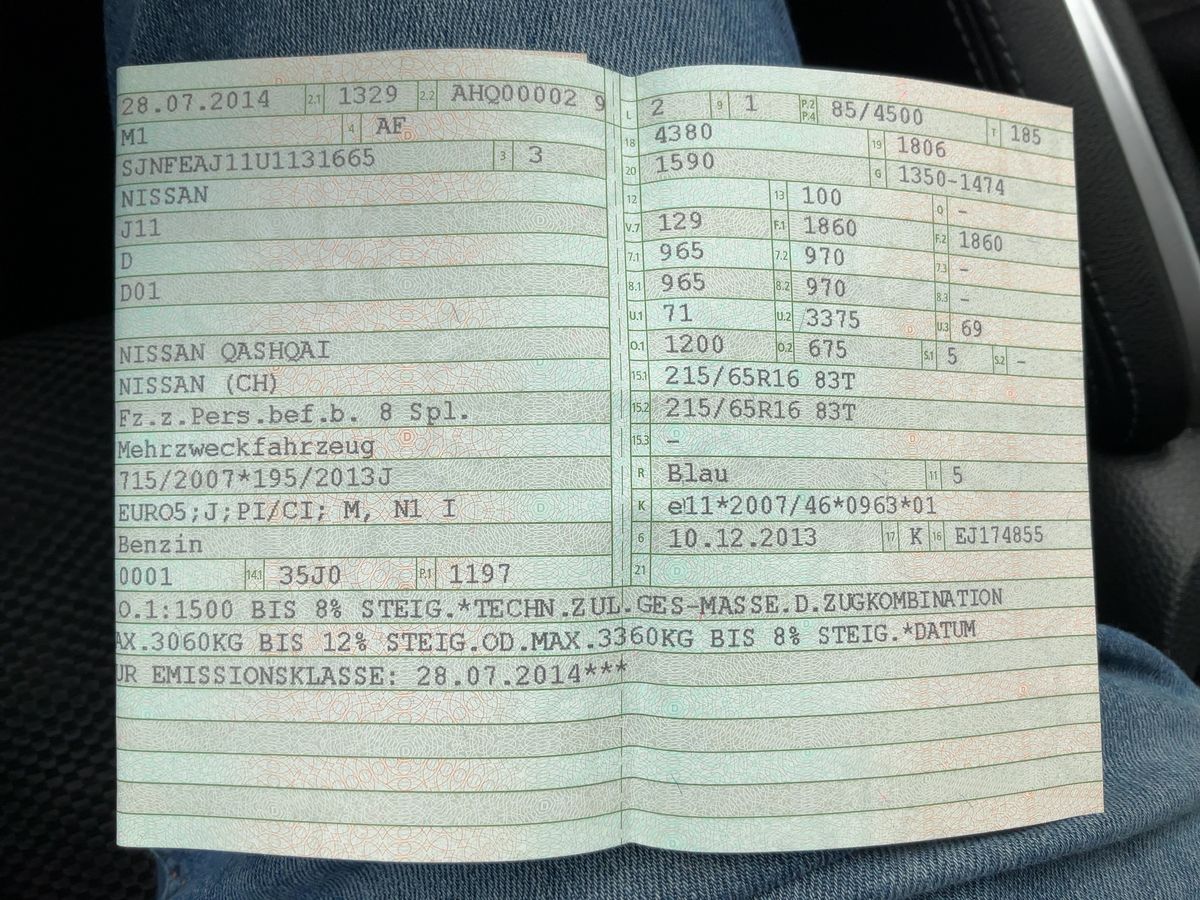 28.07.2014 2.1 1329 2.2 AHQ00002 9
M1 4 AF
SJNFEAJ11U1131665 3 3
NISSAN
J11
D
D01
NISSAN QASHQAI
NISSAN (CH)
Fz.z.Pers.bef.b. 8 Spl.
Mehrzweckfahrzeug
715/2007*195/2013J
EURO5;J;PI/CI; M, N1 I
Benzin
0001 14.1 35J0 P.1 1197
L 2 9 1 P.2 P.4 85/4500 T 185
18 4380 19 1806
20 1590 G 1350-1474
12 13 100 Q -
V.7 129 F.1 1860 F.2 1860
7.1 965 7.2 970 7.3 -
8.1 965 8.2 970 8.3 -
U.1 71 U.2 3375 U.3 69
O.1 1200 O.2 675 S.1 5 S.2 -
15.1 215/65R16 83T
15.2 215/65R16 83T
15.3 -
R Blau 11 5
K e11*2007/46*0963*01
6 10.12.2013 17 K 16 EJ174855
21
O.1:1500 BIS 8% STEIG.*TECHN.ZUL.GES-MASSE.D.ZUGKOMBINATION
AX.3060KG BIS 12% STEIG.OD.MAX.3360KG BIS 8% STEIG.*DATUM
UR EMISSIONSKLASSE: 28.07.2014***